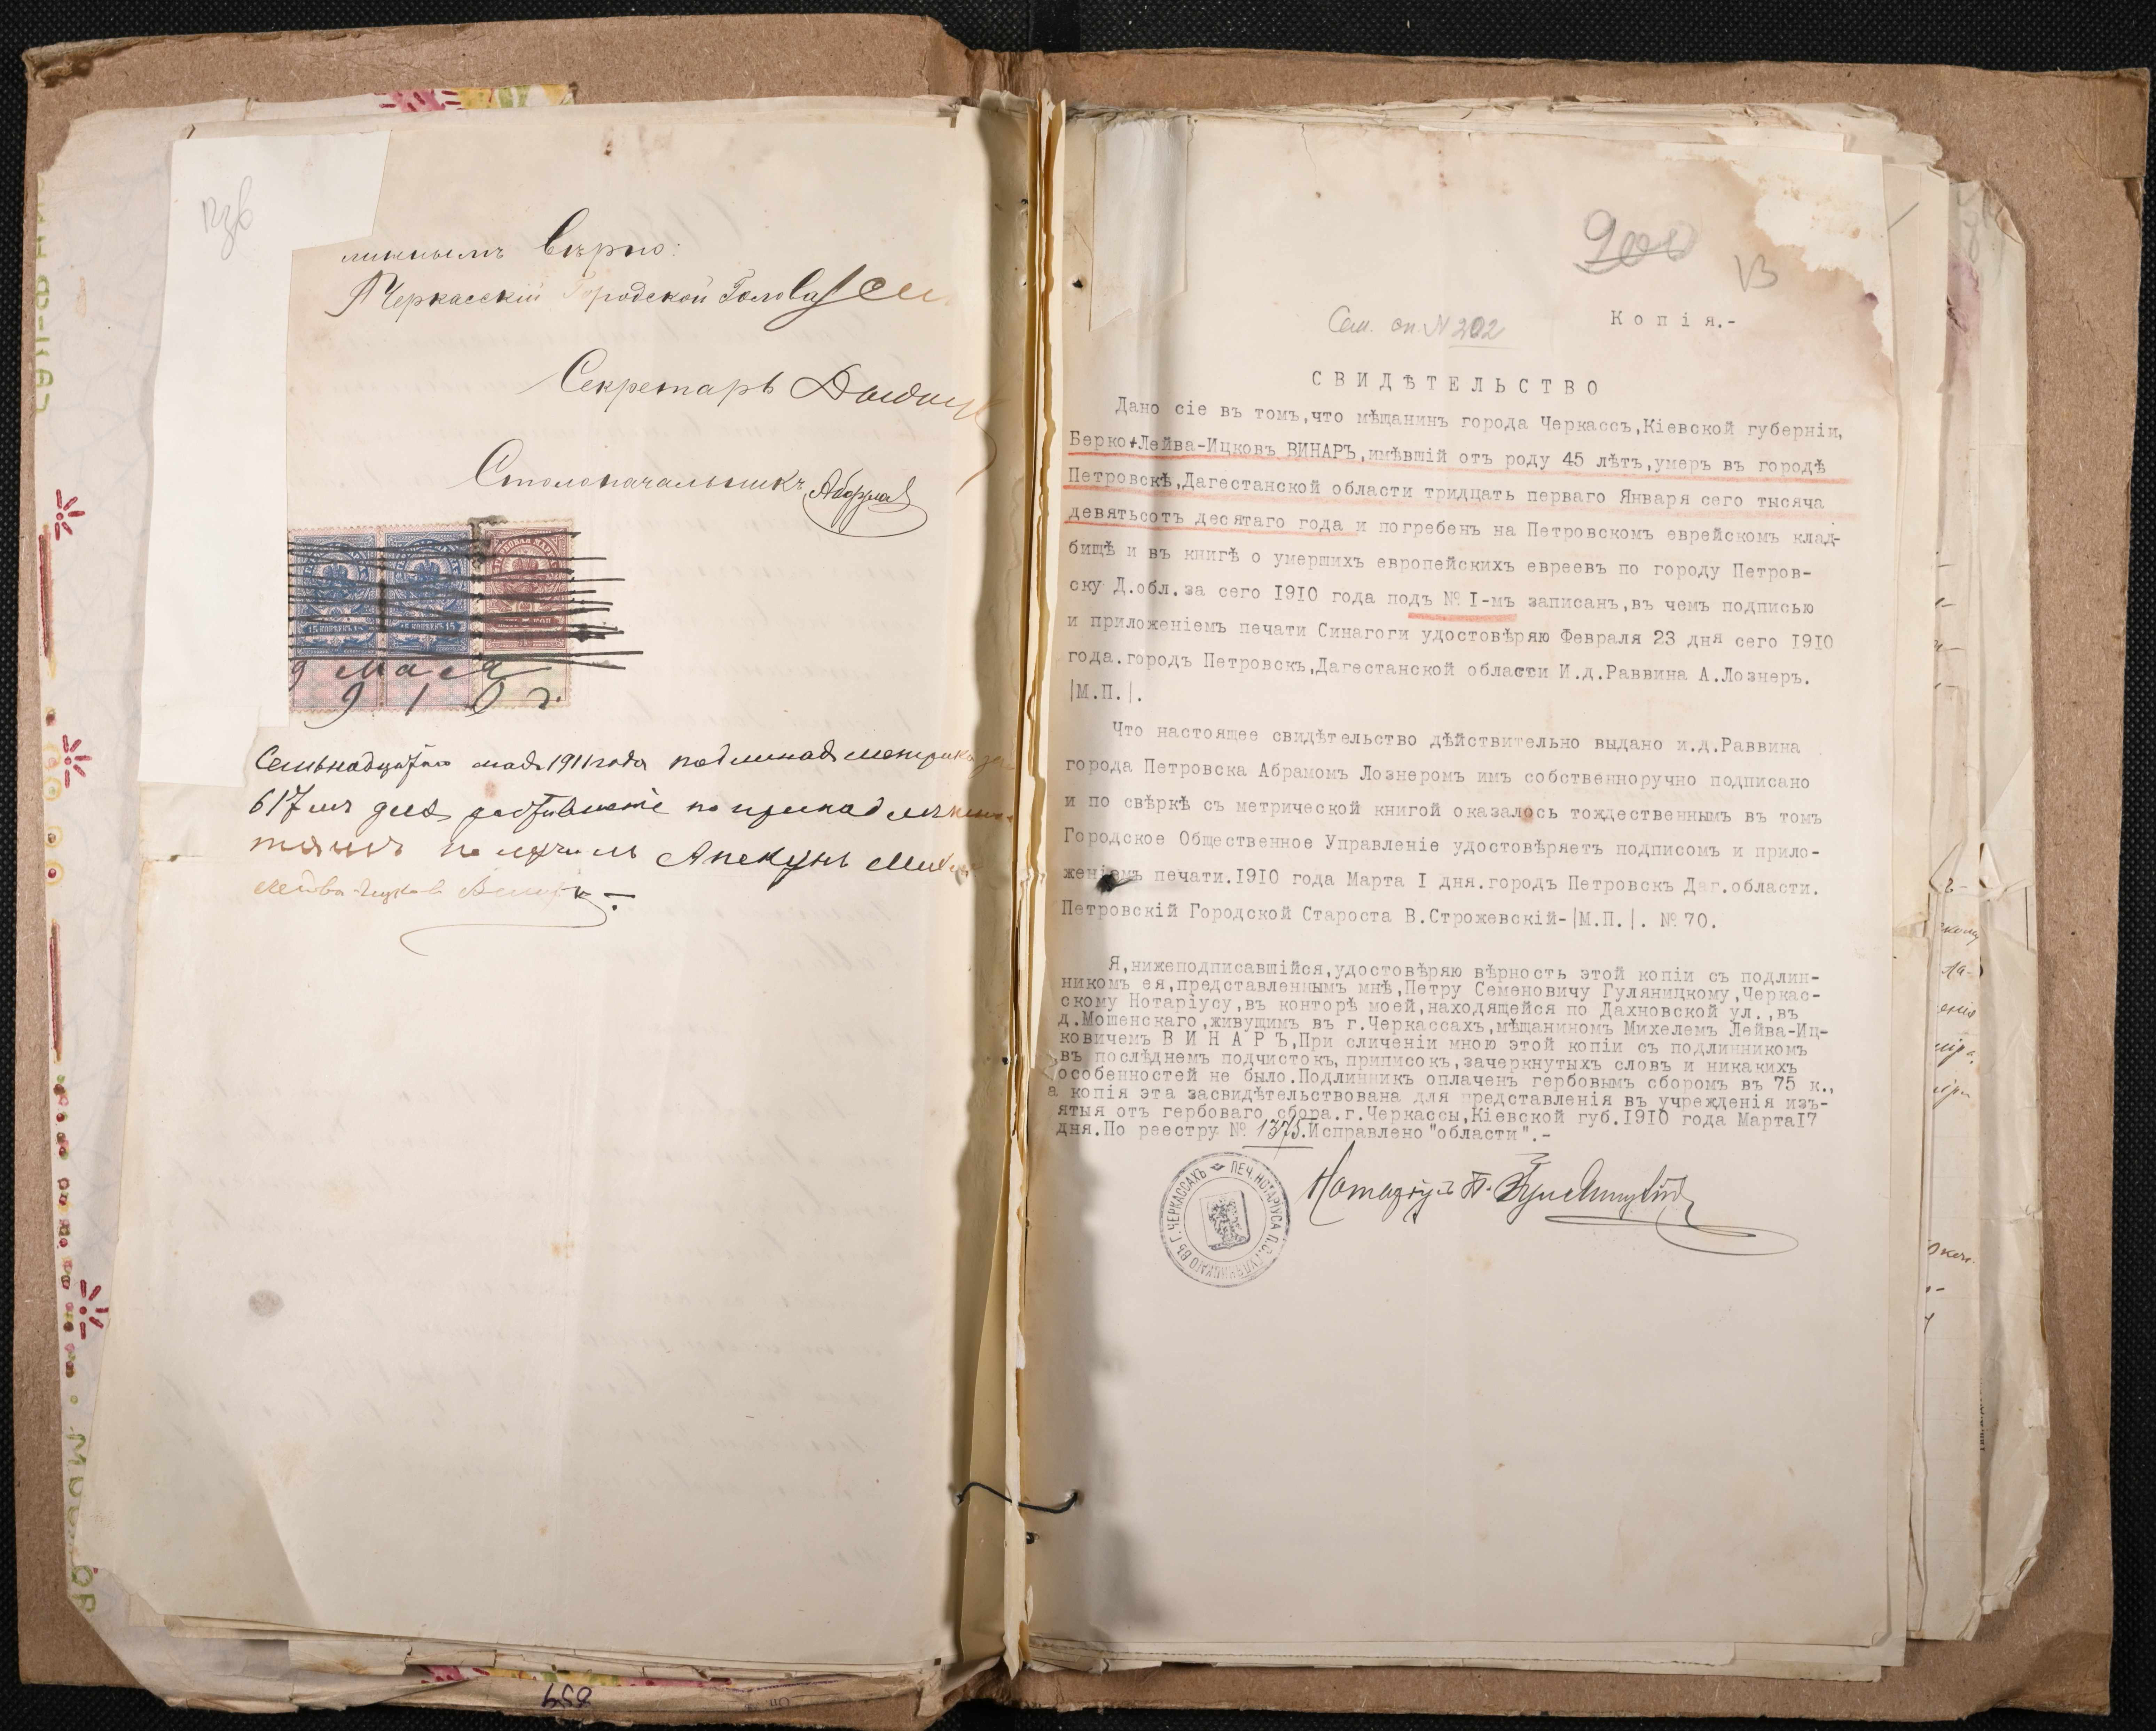 линнымъ вѣрно:
Черкасскій Городской Голова
Секретарь
Столоначальникъ
15 КОПѢЕКЪ 15
15 КОПѢЕКЪ 15
9 мая
910 г.
мая 1911 года
617
получилъ Апекунъ
Лейва-Ицков
900
13
Сем. сп. № 202
Копія.-
СВИДѢТЕЛЬСТВО
Дано сіе въ томъ,что мѣщанинъ города Черкассъ,Кіевской губерніи,
Берко+Лейва-Ицковъ ВИНАРЪ,имѣвшій отъ роду 45 лѣтъ,умеръ въ городѣ
Петровскѣ,Дагестанской области тридцать перваго Января сего тысяча
девятьсотъ десятаго года и погребенъ на Петровскомъ еврейскомъ клад-
бищѣ и въ книгѣ о умершихъ европейскихъ евреевъ по городу Петров-
ску Д.обл.за сего I9I0 года подъ № I-мъ записанъ,въ чемъ подписью
и приложеніемъ печати Синагоги удостовѣряю Февраля 23 дня сего I9I0
года.городъ Петровскъ,Дагестанской области И.д.Раввина А.Лознеръ.
|М.П.|.
Что настоящее свидѣтельство дѣйствительно выдано и.д.Раввина
города Петровска Абрамомъ Лознеромъ имъ собственноручно подписано
и по свѣркѣ съ метрической книгой оказалось тождественнымъ въ томъ
Городское Общественное Управленіе удостовѣряетъ подписомъ и прило-
женіемъ печати.I9I0 года Марта I дня.городъ Петровскъ Даг.области.
Петровскій Городской Староста В.Строжевскій-|М.П.|. № 70.
Я,нижеподписавшійся,удостовѣряю вѣрность этой копіи съ подлин-
никомъ ея,представленнымъ мнѣ,Петру Семеновичу Гуляницкому,Черкас-
скому Нотаріусу,въ конторѣ моей,находящейся по Дахновской ул.,въ
д.Мошенскаго,живущимъ въ г.Черкассахъ,мѣщаниномъ Михелемъ Лейва-Иц-
ковичемъ В И Н А Р Ъ,При сличеніи мною этой копіи съ подлинникомъ
въ послѣднемъ подчистокъ,приписокъ,зачеркнутыхъ словъ и никакихъ
особенностей не было.Подлинникъ оплаченъ гербовымъ сборомъ въ 75 к.,
а копія эта засвидѣтельствована для представленія въ учрежденія изъ-
ятыя отъ гербоваго сбора.г.Черкассы,Кіевской губ.I9I0 года МартаI7
дня.По реестру № 1375.Исправлено"области".-
Нотаріусъ П. Гуляницкій
ПЕЧ. НОТАРІУСА П.С.ГУЛЯНИЦКАГО ВЪ Г. ЧЕРКАССАХЪ
859